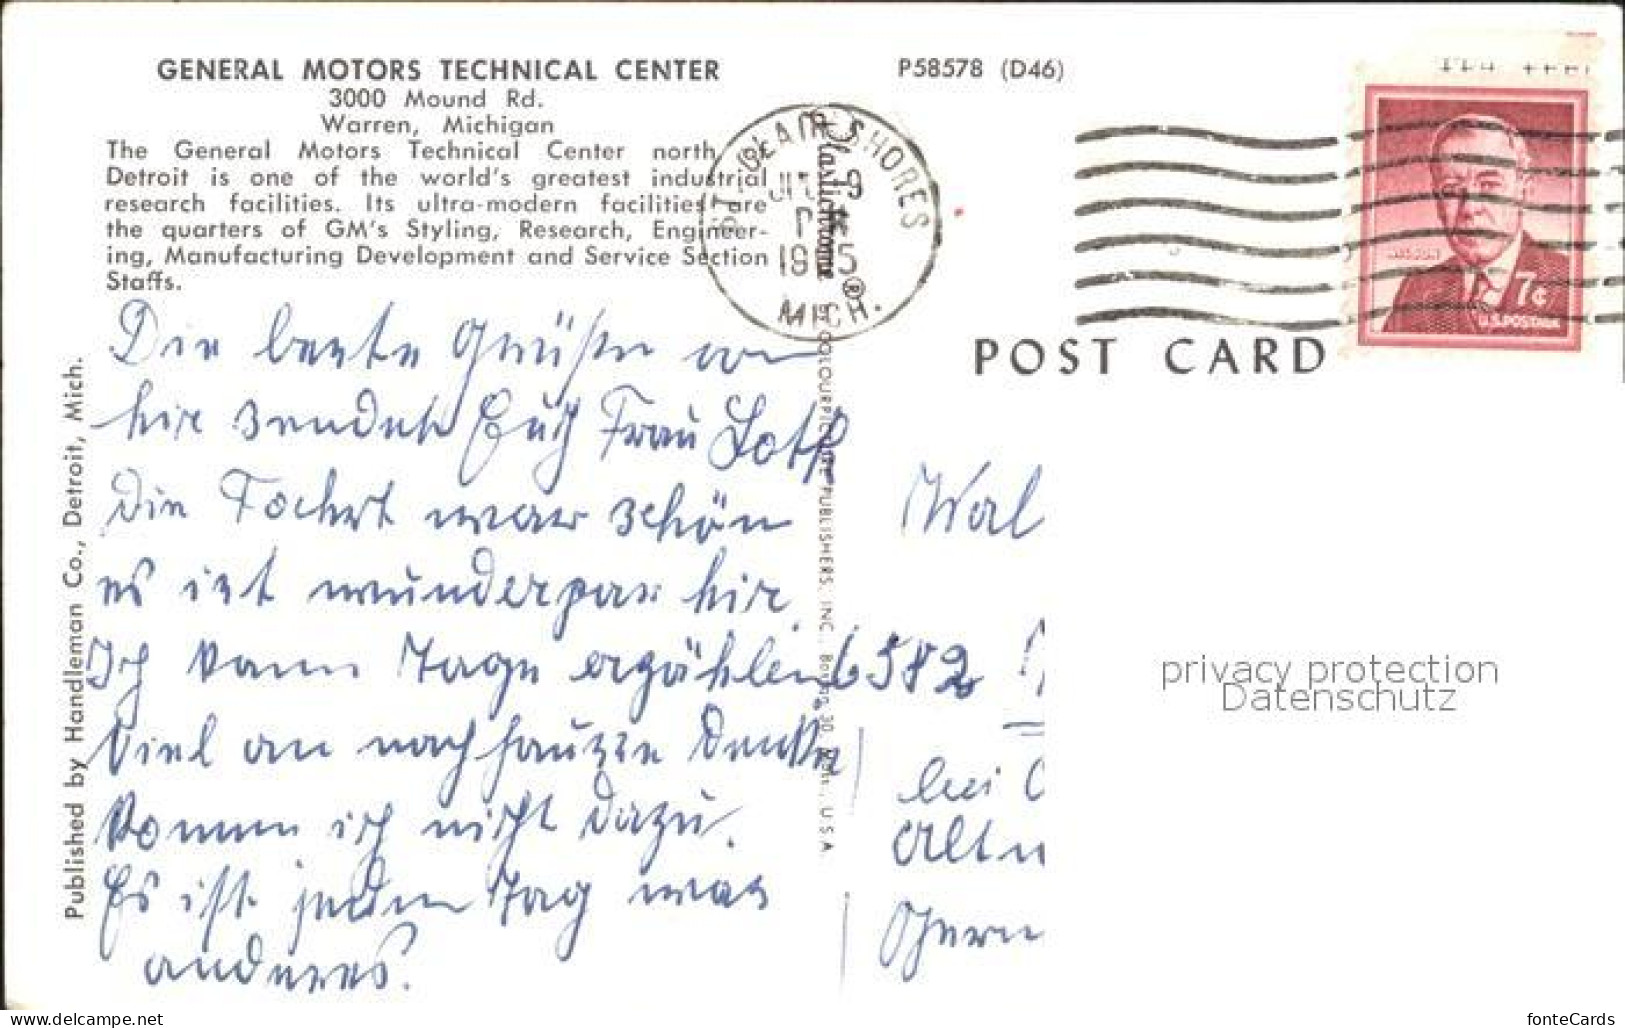 GENERAL MOTORS TECHNICAL CENTER
3000 Mound Rd.
Warren, Michigan
The General Motors Technical Center north of
Detroit is one of the world's greatest industrial
research facilities. Its ultra-modern facilities are
the quarters of GM's Styling, Research, Engineer-
ing, Manufacturing Development and Service Section
Staffs.
P58578 (D46)
ST. CLAIR SHORES
9
MICH.
Plastichrome®
WILSON
7¢
U.S. POSTAGE
POST CARD
Published by Handleman Co., Detroit, Mich.
COLOURPICTURE PUBLISHERS, INC., Boston 30, Mass., U.S.A.
Die beste Grüße von
hir sendet Euch Frau
Die Fahrt war schön
es ist wunderpar hir.
Ich kann Tage erzählen
Viel an nach hause denken
kommen ich nicht dazu.
Es ist jeden Tag was
anderes.
6582
bei
privacy protection
Datenschutz
www.delcampe.net
fonteCards